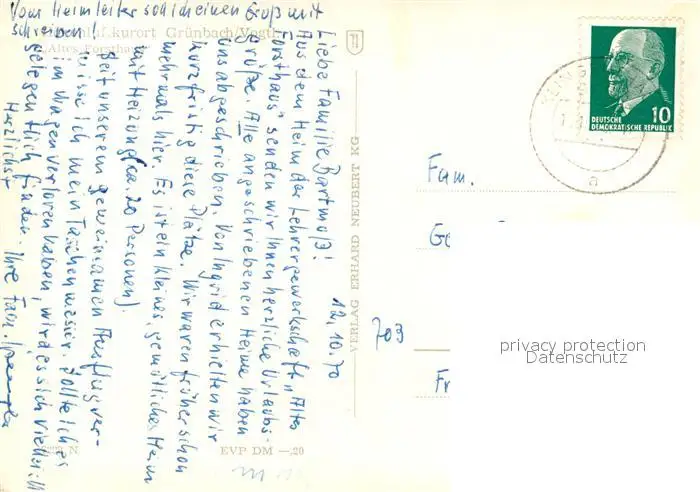 Vom Heimleiter soll ich einen Gruß mit
schreiben!
kurort Grünbach/Vogtl.
"Altes Forsthaus"
12.10.70
Liebe Familie Bartmuß!
Aus dem Heim der Lehrergewerkschaft "Altes
Forsthaus" senden wir Ihnen herzliche Urlaubs-
grüße. Alle angeschriebenen Heime haben
uns abgeschrieben. Von Ingrid erhielten wir
kurzfristig diese Plätze. Wir waren früher schon
mehrmals hier. Es ist ein kleines, gemütliches Heim
mit Heizung (ca. 20 Personen).
Seit unserem gemeinsamen Ausflug ver-
misse ich mein Taschenmesser. Sollte ich es
im Wagen verloren haben, wird es sich vielleicht
gelegentlich finden.
Herzlichst Ihre Fam.
N
EVP DM —,20
VERLAG ERHARD NEUBERT KG
10
DEUTSCHE
DEMOKRATISCHE REPUBLIK
a
Fam.
Ge
703
Fr
privacy protection
Datenschutz